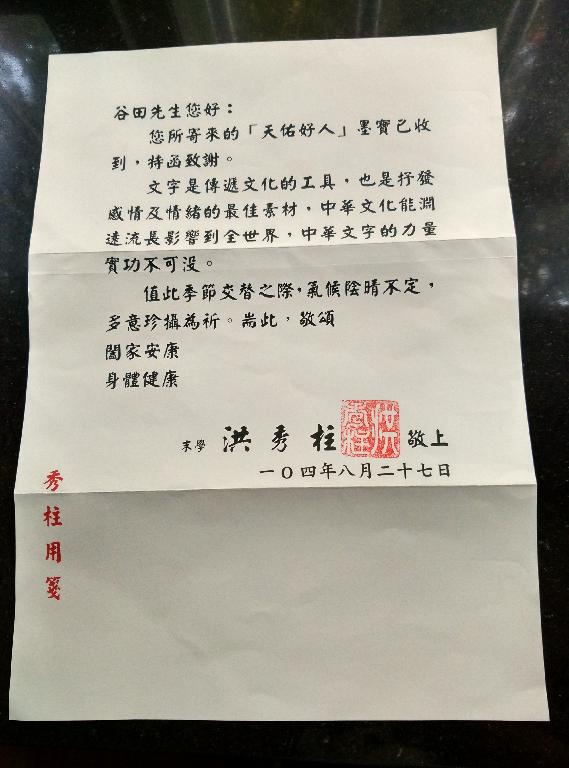 谷田先生您好：
您所寄來的「天佑好人」墨寶已收
到，持函致謝。
文字是傳遞文化的工具，也是抒發
感情及情緒的最佳素材，中華文化能淵
遠流長影響到全世界，中華文字的力量
實功不可没。
值此季節交替之際，氣候陰晴不定，
多意珍攝為祈。耑此，敬頌
闔家安康
身體健康
末學 洪秀柱 敬上
洪秀柱
一〇四年八月二十七日
秀柱用箋